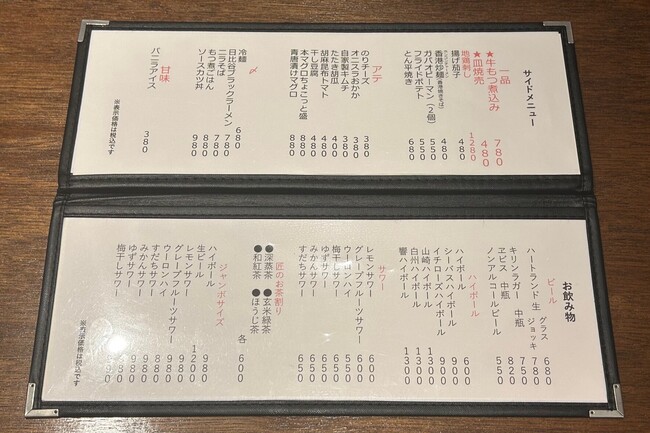 サイドメニュー
一品
★牛もつ煮込み 780
★皿焼売 480
地鶏刺し 1280
揚げ茄子 480
香港炒麺(香港焼きそば) 480
ガパオピーマン(2個) 550
フライドポテト 550
とん平焼き 680
アテ
のりチーズ 380
オニスラおかか 380
自家製キムチ 380
たたき胡瓜 400
胡麻昆布トマト 480
干し豆腐 480
本マグロちょこっと盛 880
青唐漬けマグロ 880
〆
冷麺 680
日比谷ブラックラーメン 780
ニラそば 780
もつ煮ごはん 880
ソースカツ丼 980
甘味
バニラアイス 380
※表示価格は税込です
お飲み物
ビール
ハートランド生 グラス 580
ジョッキ 780
キリンラガー 中瓶 750
ヱビス 中瓶 820
ノンアルコールビール 550
ハイボール
ハイボール 600
シーバスハイボール 900
イチローズハイボール 900
山崎ハイボール 1300
白州ハイボール 1300
響ハイボール 1300
サワー
レモンサワー 600
グレープフルーツサワー 600
ウーロンハイ 550
ゆずサワー 600
みかんサワー 600
梅干しサワー 650
すだちサワー 650
匠のお茶割り
●深蒸茶 ●玄米緑茶
●和紅茶 ●ほうじ茶
各 600
ジャンボサイズ
ハイボール 980
生ビール 1200
レモンサワー 980
グレープフルーツサワー 980
ウーロンハイ 880
すだちサワー 980
みかんサワー 980
ゆずサワー 980
梅干しサワー 980
※表示価格は税込です